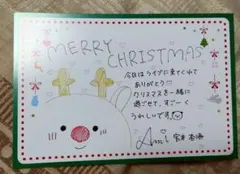 MERRY CHRISTMAS
今日はライブに来てくれて
ありがとう♡
クリスマスを一緒に
過ごせて、すごーく
うれしいです